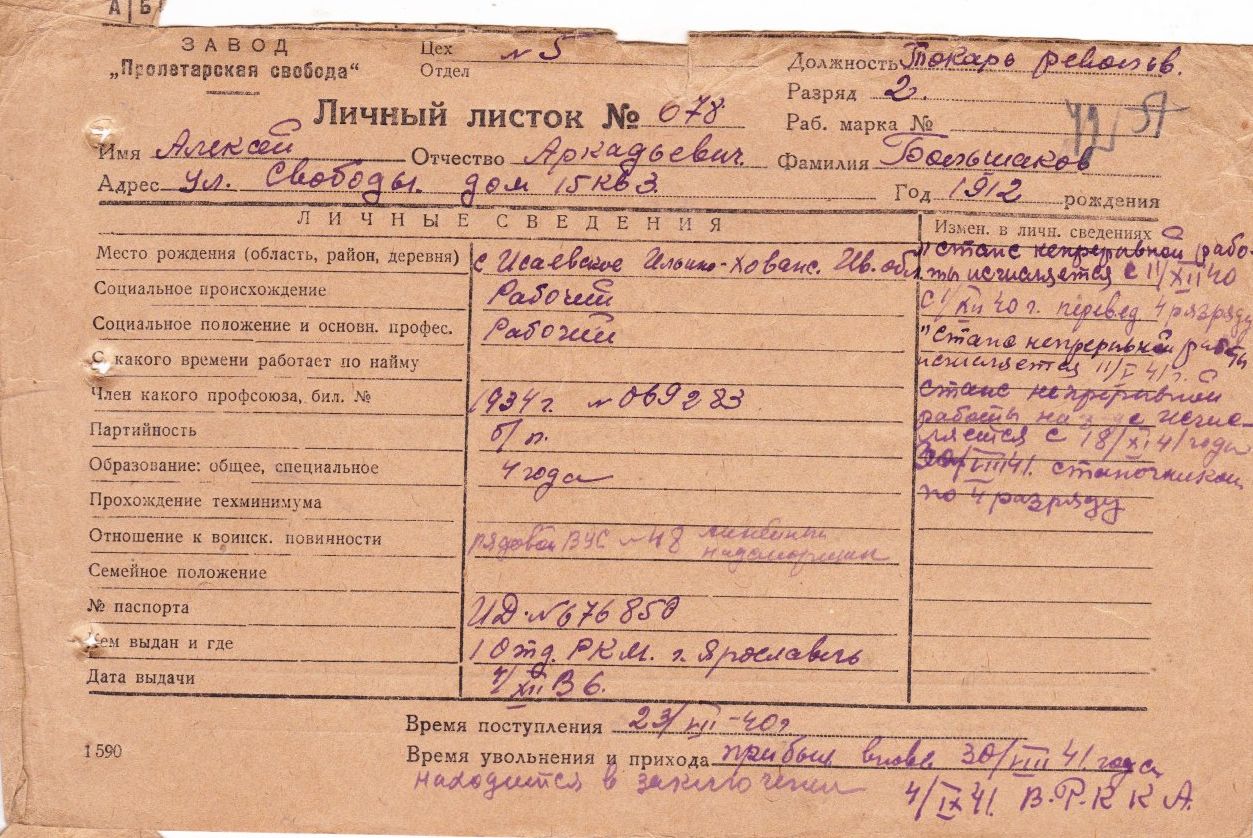 А Б
ЗАВОД
„Пролетарская свобода“
Цех № 5
Отдел
Должность Токарь револьв.
Разряд 2.
Раб. марка №
Личный листок № 078
Имя Алексей Отчество Аркадьевич Фамилия Большаков
Адрес ул. Свободы. дом 15 кв 3 Год 1912 рождения
ЛИЧНЫЕ СВЕДЕНИЯ
Измен. в личн. сведениях
Место рождения (область, район, деревня) с Исаевское Ильино-Хованс. Ив. обл.
Социальное происхождение Рабочий
Социальное положение и основн. профес. Рабочий
С какого времени работает по найму
Член какого профсоюза, бил. № 1934 г. № 069283
Партийность б/п.
Образование: общее, специальное 4 года
Прохождение техминимума
Отношение к воинск. повинности рядовой ВУС № 48 линейный
надсморщик
Семейное положение
№ паспорта ИД. № 676850
Кем выдан и где 1 Отд. РКМ. г. Ярославль
Дата выдачи
"Стаж непрерывной рабо-
ты исчисляется с 11/XII 40
перевед 4 разряду
"Стаж непрерывной работы
исчисляется
Стаж непрерывной
работы на з-де исчис-
ляется с 18/XI 41 года
30/VIII 41. станочником
по 4 разряду
Время поступления
Время увольнения и прихода прибыл вновь 30/VIII 41 года
находится в заключении 4/IX 41. В. Р. К К А.
1590